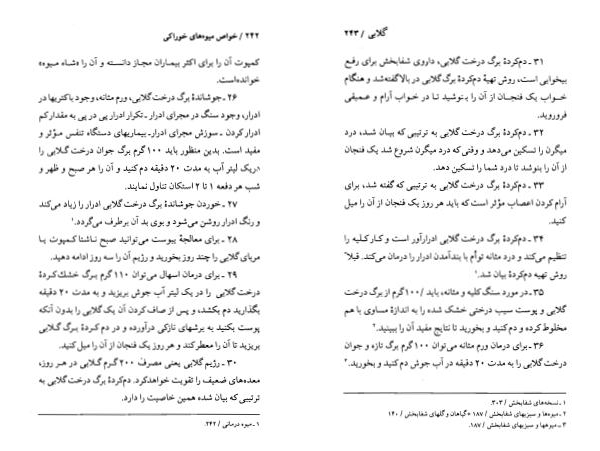 ۲۴۲ / خواص میوه‌های خوراکی
کمپوت آن را برای اکثر بیماران مجاز دانسته و آن را «شاه میوه»
خوانده‌است.
۲۶ ـ جوشاندهٔ برگ درخت گلابی، ورم مثانه، وجود باکتریها در
ادرار، وجود سنگ در مجرای ادرار ـ تکرار ادرار پی در پی به مقدار کم
ادرار کردن ـ سوزش مجرای ادرار ـ بیماریهای دستگاه تنفس مؤثر و
مفید است. بدین منظور باید ۱۰۰ گرم برگ جوان درخت گلابی را
دریک لیتر آب به مدت ۲۰ دقیقه دم کنید و آن را هر صبح و ظهر و
شب هر دفعه ۱ تا ۲ استکان تناول نمایند.
۲۷ ـ خوردن جوشاندهٔ برگ درخت گلابی ادرار را زیاد می‌کند
و رنگ ادرار روشن می‌شود و بوی بد آن برطرف می‌گردد.۱
۲۸ ـ برای معالجهٔ یبوست می‌توانید صبح ناشتا کمپوت یا
مربای گلابی را چند روز بخورید و رژیم آن را سه روز ادامه دهید.
۲۹ ـ برای درمان اسهال می‌توان ۱۱۰ گرم برگ خشک‌کردهٔ
درخت گلابی را در یک لیتر آب جوش بریزید و به مدت ۲۰ دقیقه
بگذارید دم بکشد، و پس از صاف کردن آن یک گلابی را بدون آنکه
پوست بکنید به برشهای نازکی درآورده و در دم کردهٔ برگ گلابی
بریزید تا آن را معطر کند و هر روز یک فنجان از آن را میل کنید.
۳۰ ـ رژیم گلابی یعنی مصرف ۲۰۰ گرم گلابی در هر روز،
معده‌های ضعیف را تقویت خواهدکرد. دم‌کردهٔ برگ درخت گلابی به
ترتیبی که بیان شده همین خاصیت را دارد.
۱ ـ میوه درمانی / ۲۴۲.
گلابی / ۲۴۳
۳۱ ـ دم‌کردهٔ برگ درخت گلابی، داروی شفابخش برای رفع
بیخوابی است، روش تهیهٔ دم‌کردهٔ برگ گلابی در بالاگفته‌شد و هنگام
خواب یک فنجان از آن را بنوشید تا در خواب آرام و عمیقی
فروروید.
۳۲ ـ دم‌کردهٔ برگ درخت گلابی به ترتیبی که بیان شد، درد
میگرن را تسکین می‌دهد و وقتی که درد میگرن شروع شد یک فنجان
از آن را بنوشد تا درد شما را تسکین دهد.
۳۳ ـ دم‌کردهٔ برگ درخت گلابی به ترتیبی که گفته شد، برای
آرام کردن اعصاب مؤثر است که باید هر روز یک فنجان از آن را میل
کنید.
۳۴ ـ دم‌کردهٔ برگ درخت گلابی ادرارآور است و کار کلیه را
تنظیم می‌کند و درد مثانه توأم با بندآمدن ادرار را درمان می‌کند. قبلاً
روش تهیه دم‌کردهٔ بیان شد.۱
۳۵ ـ در مورد سنگ کلیه و مثانه، باید /۱۰۰گرم از برگ درخت
گلابی و پوست سیب درختی خشک شده را به اندازهٔ مساوی با هم
مخلوط کرده و دم کنید و بخورید تا نتایج مفید آن را ببینید.۲
۳۶ ـ برای درمان ورم مثانه می‌توان ۱۰۰ گرم برگ تازه و جوان
درخت گلابی را به مدت ۲۰ دقیقه در آب جوش دم کنید و بخورید.۳
۱ ـ نسخه‌های شفابخش / ۳۰۳.
۲ ـ میوه‌ها و سبزیهای شفابخش / ۱۸۷ گیاهان و گلهای شفابخش / ۱۴۰
۳ ـ میوه‌ها و سبزیهای شفابخش / ۱۸۷.